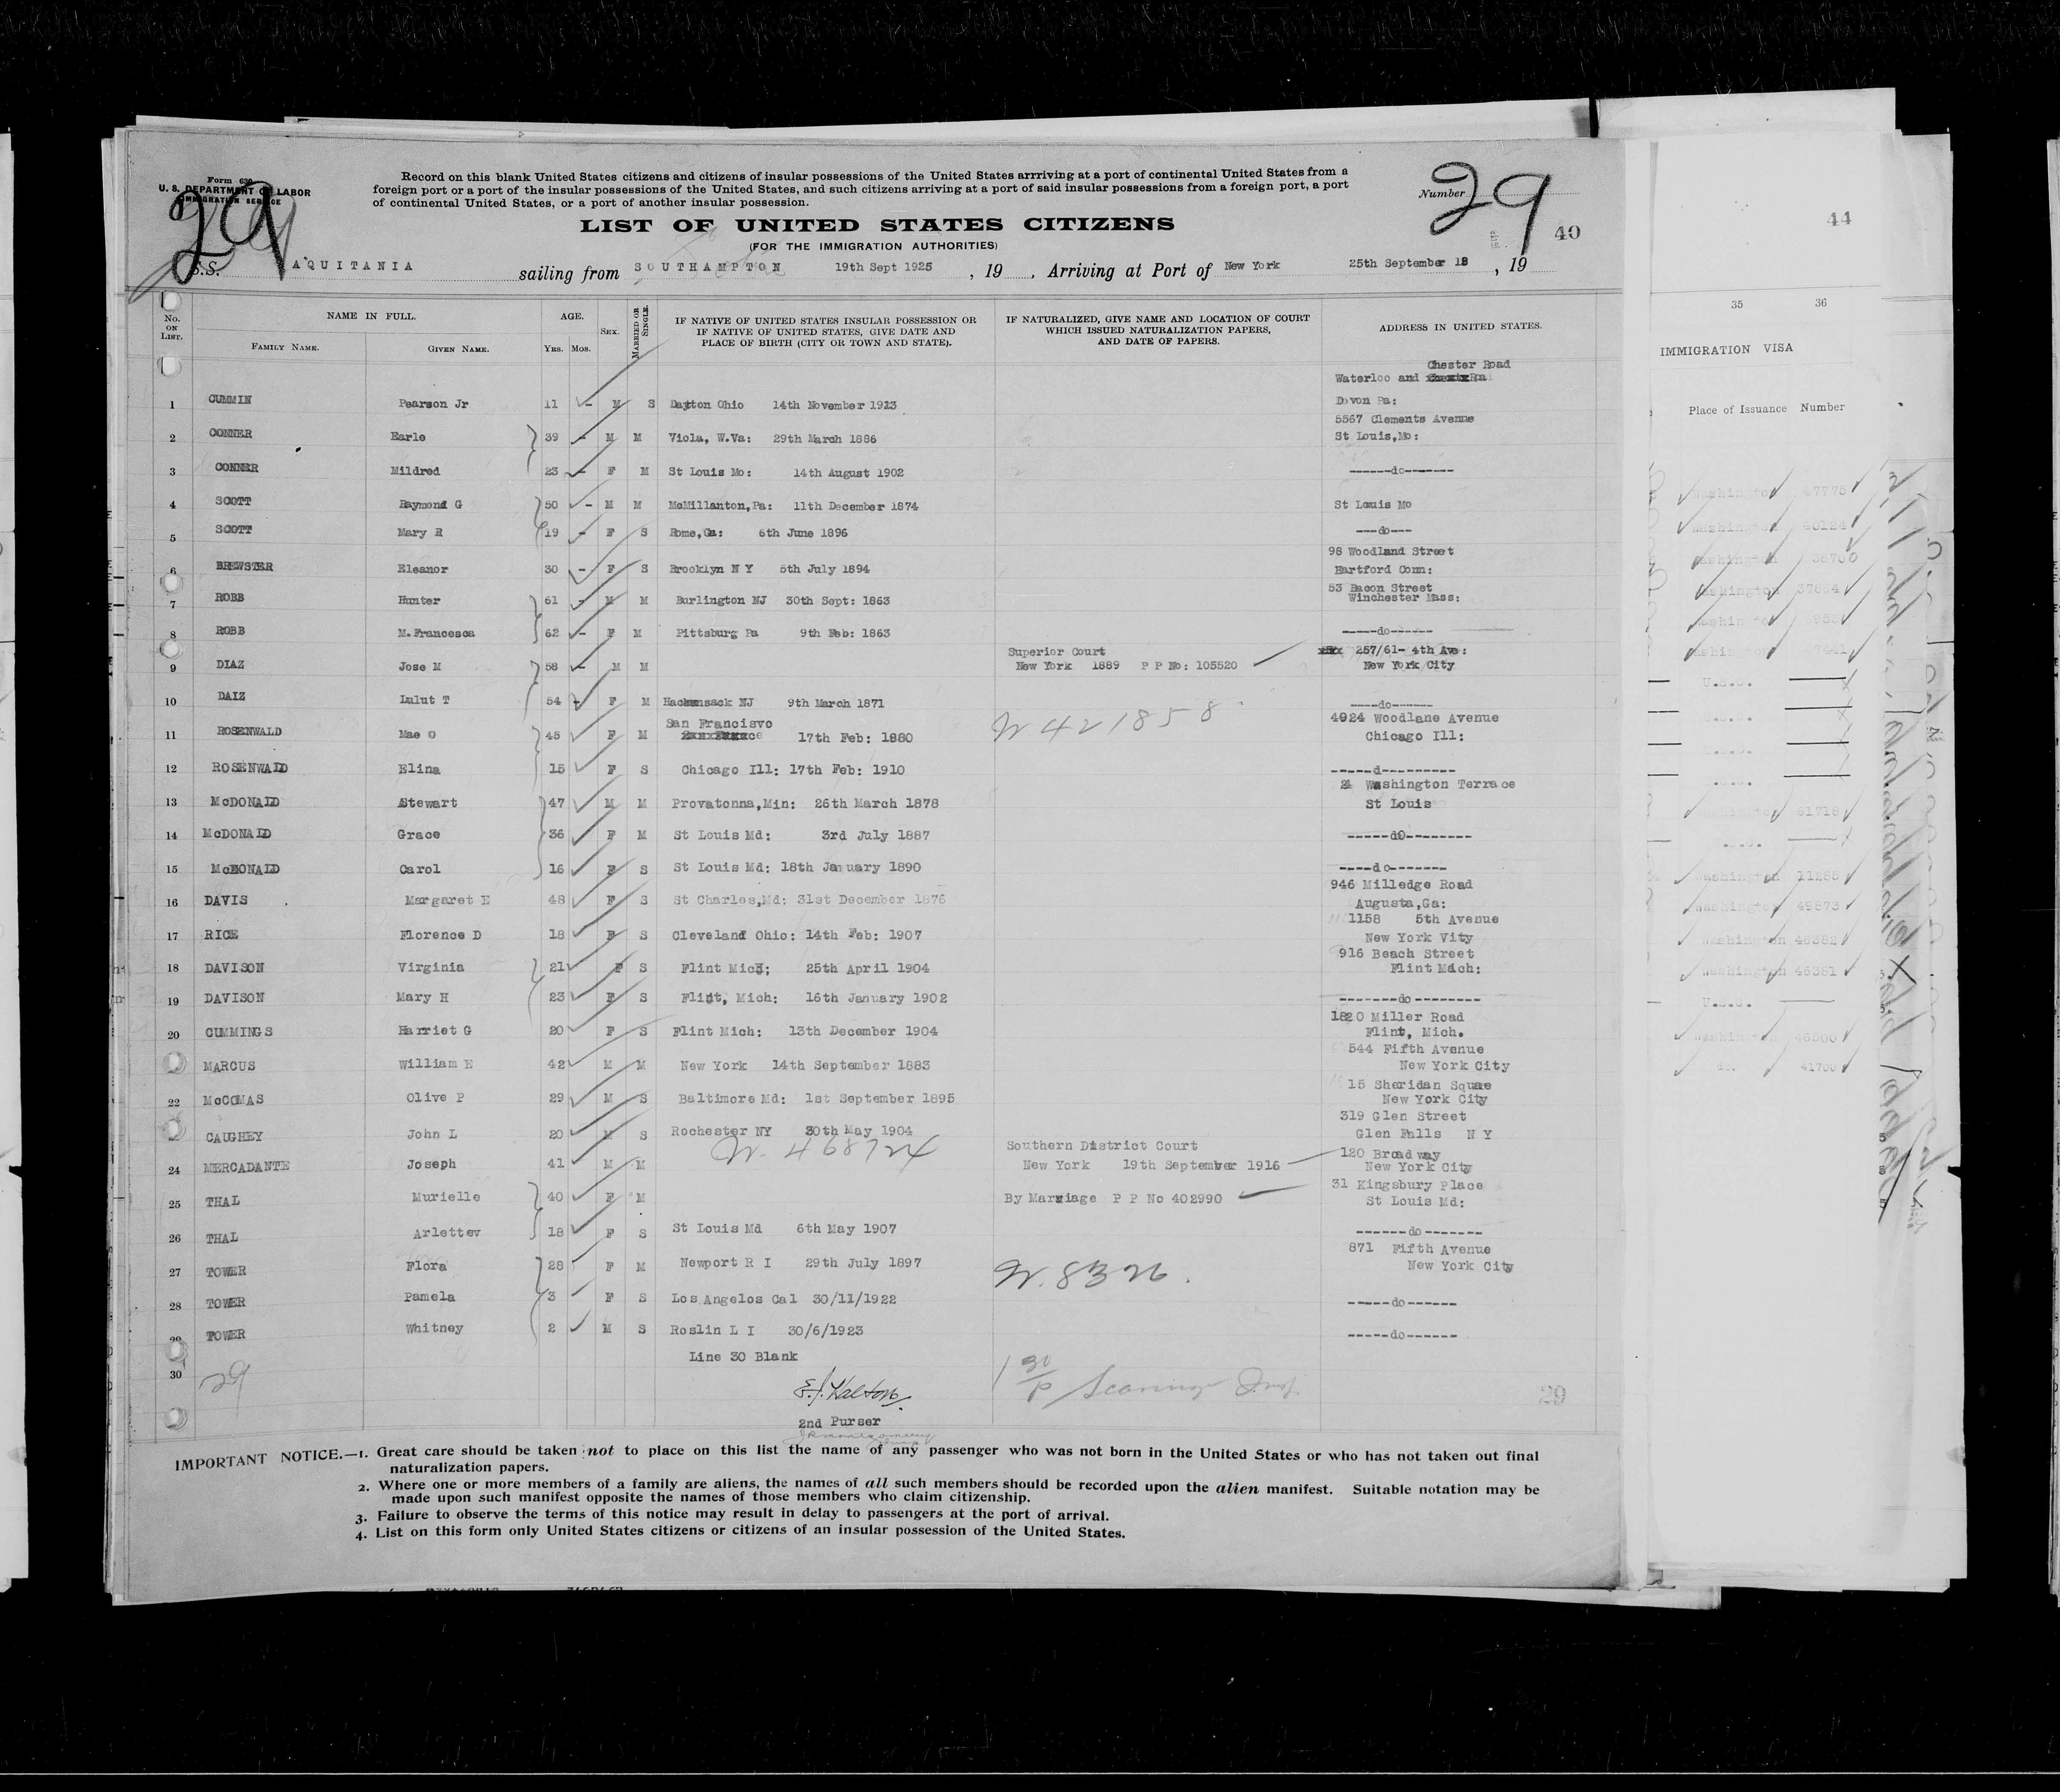 Form 630
U. S. DEPARTMENT OF LABOR
IMMIGRATION SERVICE
29
Record on this blank United States citizens and citizens of insular possessions of the United States arrriving at a port of continental United States from a
foreign port or a port of the insular possessions of the United States, and such citizens arriving at a port of said insular possessions from a foreign port, a port
of continental United States, or a port of another insular possession.
Number 29
40
LIST OF UNITED STATES CITIZENS
(FOR THE IMMIGRATION AUTHORITIES)
S.S. AQUITANIA sailing from SOUTHAMPTON 19th Sept 1925 , 19 , Arriving at Port of New York 25th September , 19
No. ON LIST. NAME IN FULL. AGE. SEX. MARRIED OR SINGLE. IF NATIVE OF UNITED STATES INSULAR POSSESSION OR IF NATIVE OF UNITED STATES, GIVE DATE AND PLACE OF BIRTH (CITY OR TOWN AND STATE). IF NATURALIZED, GIVE NAME AND LOCATION OF COURT WHICH ISSUED NATURALIZATION PAPERS, AND DATE OF PAPERS. ADDRESS IN UNITED STATES.
FAMILY NAME. GIVEN NAME. YRS. MOS.
Chester Road
Waterloo and
1 CUMMIN Pearson Jr 11 - M S Dayton Ohio 14th November 1913 Devon Pa:
5567 Clements Avenue
2 CONNER Earle 39 - M M Viola, W.Va: 29th March 1886 St Louis,Mo:
3 CONNER Mildred 23 - F M St Louis Mo: 14th August 1902 ------do-------
4 SCOTT Raymond G 50 - M M McMillanton,Pa: 11th December 1874 St Louis Mo
5 SCOTT Mary R 19 - F S Rome,Ga: 6th June 1896 ----do---
98 Woodland Street
6 BREWSTER Eleanor 30 - F S Brooklyn N Y 5th July 1894 Hartford Conn:
53 Bacon Street
7 ROBB Hunter 61 - M M Burlington NJ 30th Sept: 1863 Winchester Mass:
8 ROBB M.Francesca 62 - F M Pittsburg Pa 9th Feb: 1863 -----do------
Superior Court 257/61- 4th Ave:
9 DIAZ Jose M 58 - M M New York 1889 P P No: 105520 New York City
10 DAIZ Lulut T 54 - F M Hackensack NJ 9th March 1871 ----do------
San Francisvo N 421858 4924 Woodlane Avenue
11 ROSENWALD Mae O 45 F M 17th Feb: 1880 Chicago Ill:
12 ROSENWALD Elina 15 F S Chicago Ill: 17th Feb: 1910 -----d---------
24 Washington Terrace
13 McDONALD Stewart 47 M M Provatonna,Min: 26th March 1878 St Louis
14 McDONALD Grace 36 F M St Louis Md: 3rd July 1887 -----dO--------
15 McDONALD Carol 16 F S St Louis Md: 18th January 1890 ----do-------
946 Milledge Road
16 DAVIS Margaret E 48 F S St Charles,Md: 31st December 1876 Augusta,Ga:
1158 5th Avenue
17 RICE Florence D 18 F S Cleveland Ohio: 14th Feb: 1907 New York Vity
916 Beach Street
18 DAVISON Virginia 21 F S Flint Mich; 25th April 1904 Flint Mich:
19 DAVISON Mary H 23 F S Flint, Mich: 16th January 1902 -------do--------
1820 Miller Road
20 CUMMINGS Harriet G 20 F S Flint Mich: 13th December 1904 Flint, Mich.
544 Fifth Avenue
MARCUS William E 42 M M New York 14th September 1883 New York City
15 Sheridan Squae
22 McCOMAS Olive P 29 M S Baltimore Md: 1st September 1895 New York City
319 Glen Street
CAUGHEY John L 20 M S Rochester NY 30th May 1904 Glen Falls N Y
N. 468724 Southern District Court 120 Broadway
24 MERCADANTE Joseph 41 M M New York 19th September 1916 New York City
31 Kingsbury Place
25 THAL Murielle 40 F M By Marriage P P No 402990 St Louis Md:
26 THAL Arlettev 18 F S St Louis Md 6th May 1907 ------do-------
871 Fifth Avenue
27 TOWER Flora 28 F M Newport R I 29th July 1897 N. 8326. New York City
28 TOWER Pamela 3 F S Los Angelos Cal 30/11/1922 -----do------
29 TOWER Whitney 2 M S Roslin L I 30/6/1923 -----do------
Line 30 Blank
30 29
2nd Purser
29
IMPORTANT NOTICE.—1. Great care should be taken not to place on this list the name of any passenger who was not born in the United States or who has not taken out final
naturalization papers.
2. Where one or more members of a family are aliens, the names of all such members should be recorded upon the alien manifest. Suitable notation may be
made upon such manifest opposite the names of those members who claim citizenship.
3. Failure to observe the terms of this notice may result in delay to passengers at the port of arrival.
4. List on this form only United States citizens or citizens of an insular possession of the United States.
44
35 36
IMMIGRATION VISA
Place of Issuance Number
Washington 47775
Washington 40124
Washington
Washington
U.S.C.
Washington 61718
Washington 11285
Washington 49873
Washington 46382
Washington 46381
U.S.C.
Washington
do. 41700